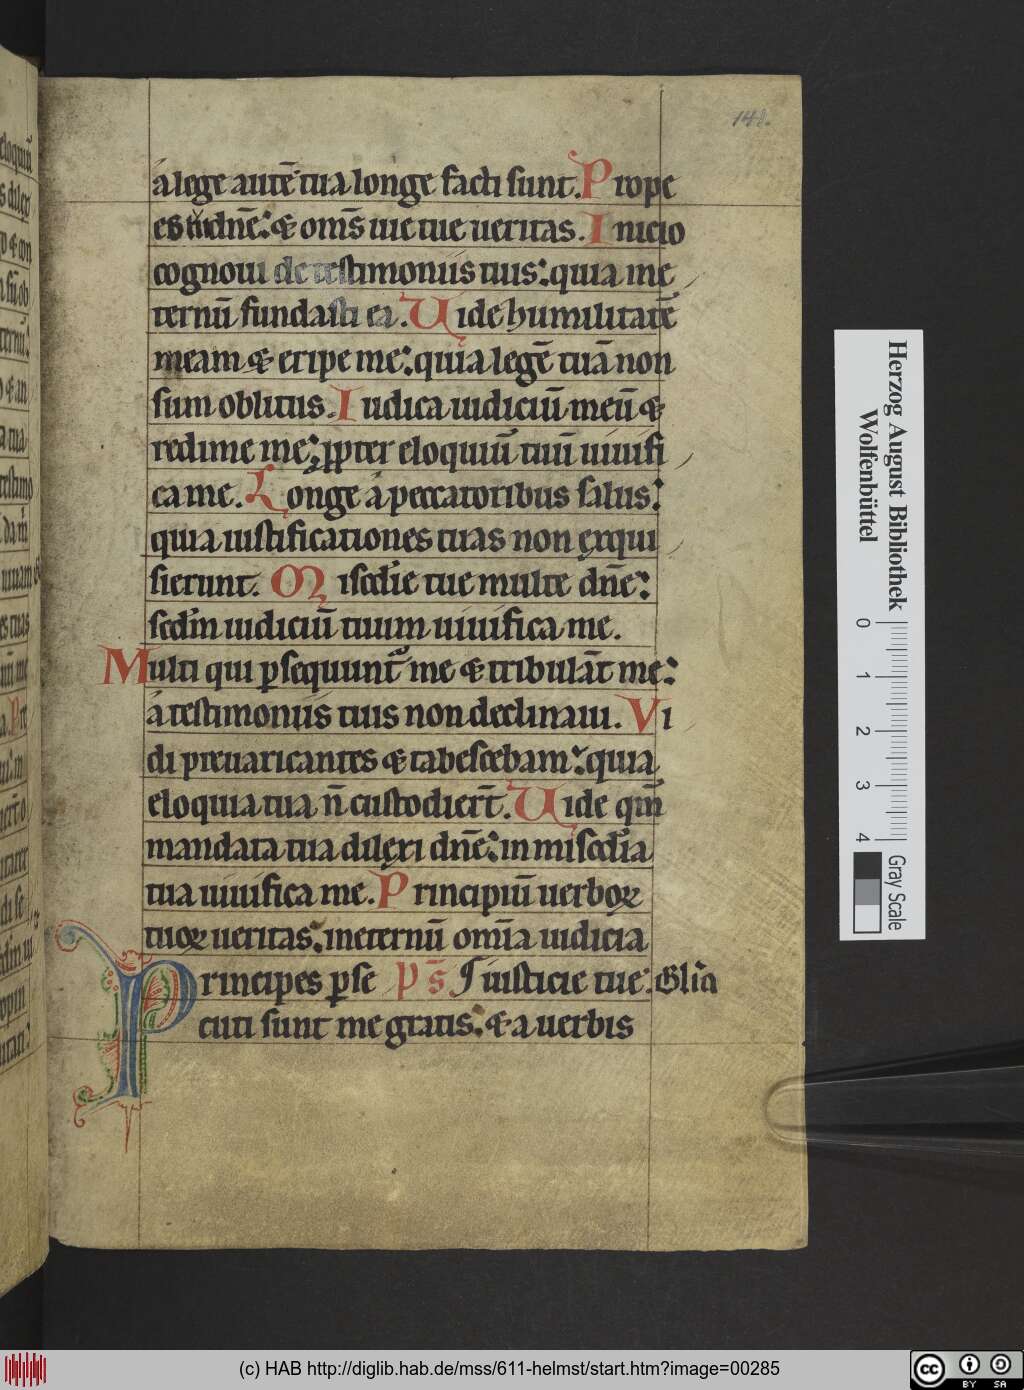 148.
a lege autē tua longe facti sunt. Prope
es tu dnē: & oms̄ uie tue ueritas. Inicio
cognoui de testimoniis tuis: quia ine
ternū fundasti ea. Uide humilitatē
meam & eripe me: quia legē tuā non
sum oblitus. Iudica iudiciū meū &
redime me: ꝓpter eloquiū tuū uiuifi
ca me. Longe a peccatoribus salus:
quia iustificationes tuas non exqui
sierunt. Miscd̓ie tue multe dn̄e:
scd̓m iudiciū tuum uiuifica me.
Multi qui ꝑsequunt᷑ me & tribulāt me:
a testimoniis tuis non declinaui. Vi
di preuaricantes & tabescebam: quia
eloquia tua n̄ custodier̄t. Uide qm̄
mandata tua dilexi dn̄e: in miscd̓ia
tua uiuifica me. Principiū uerboꝝ
tuoꝝ ueritas: ineternū om̄ia iudicia
Principes ꝑse ps̄. iusticie tue. Gl̓ia
cuti sunt me gratis: & a uerbis
Herzog August Bibliothek
Wolfenbüttel
0 1 2 3 4
Gray Scale
(c) HAB http://diglib.hab.de/mss/611-helmst/start.htm?image=00285
cc BY SA